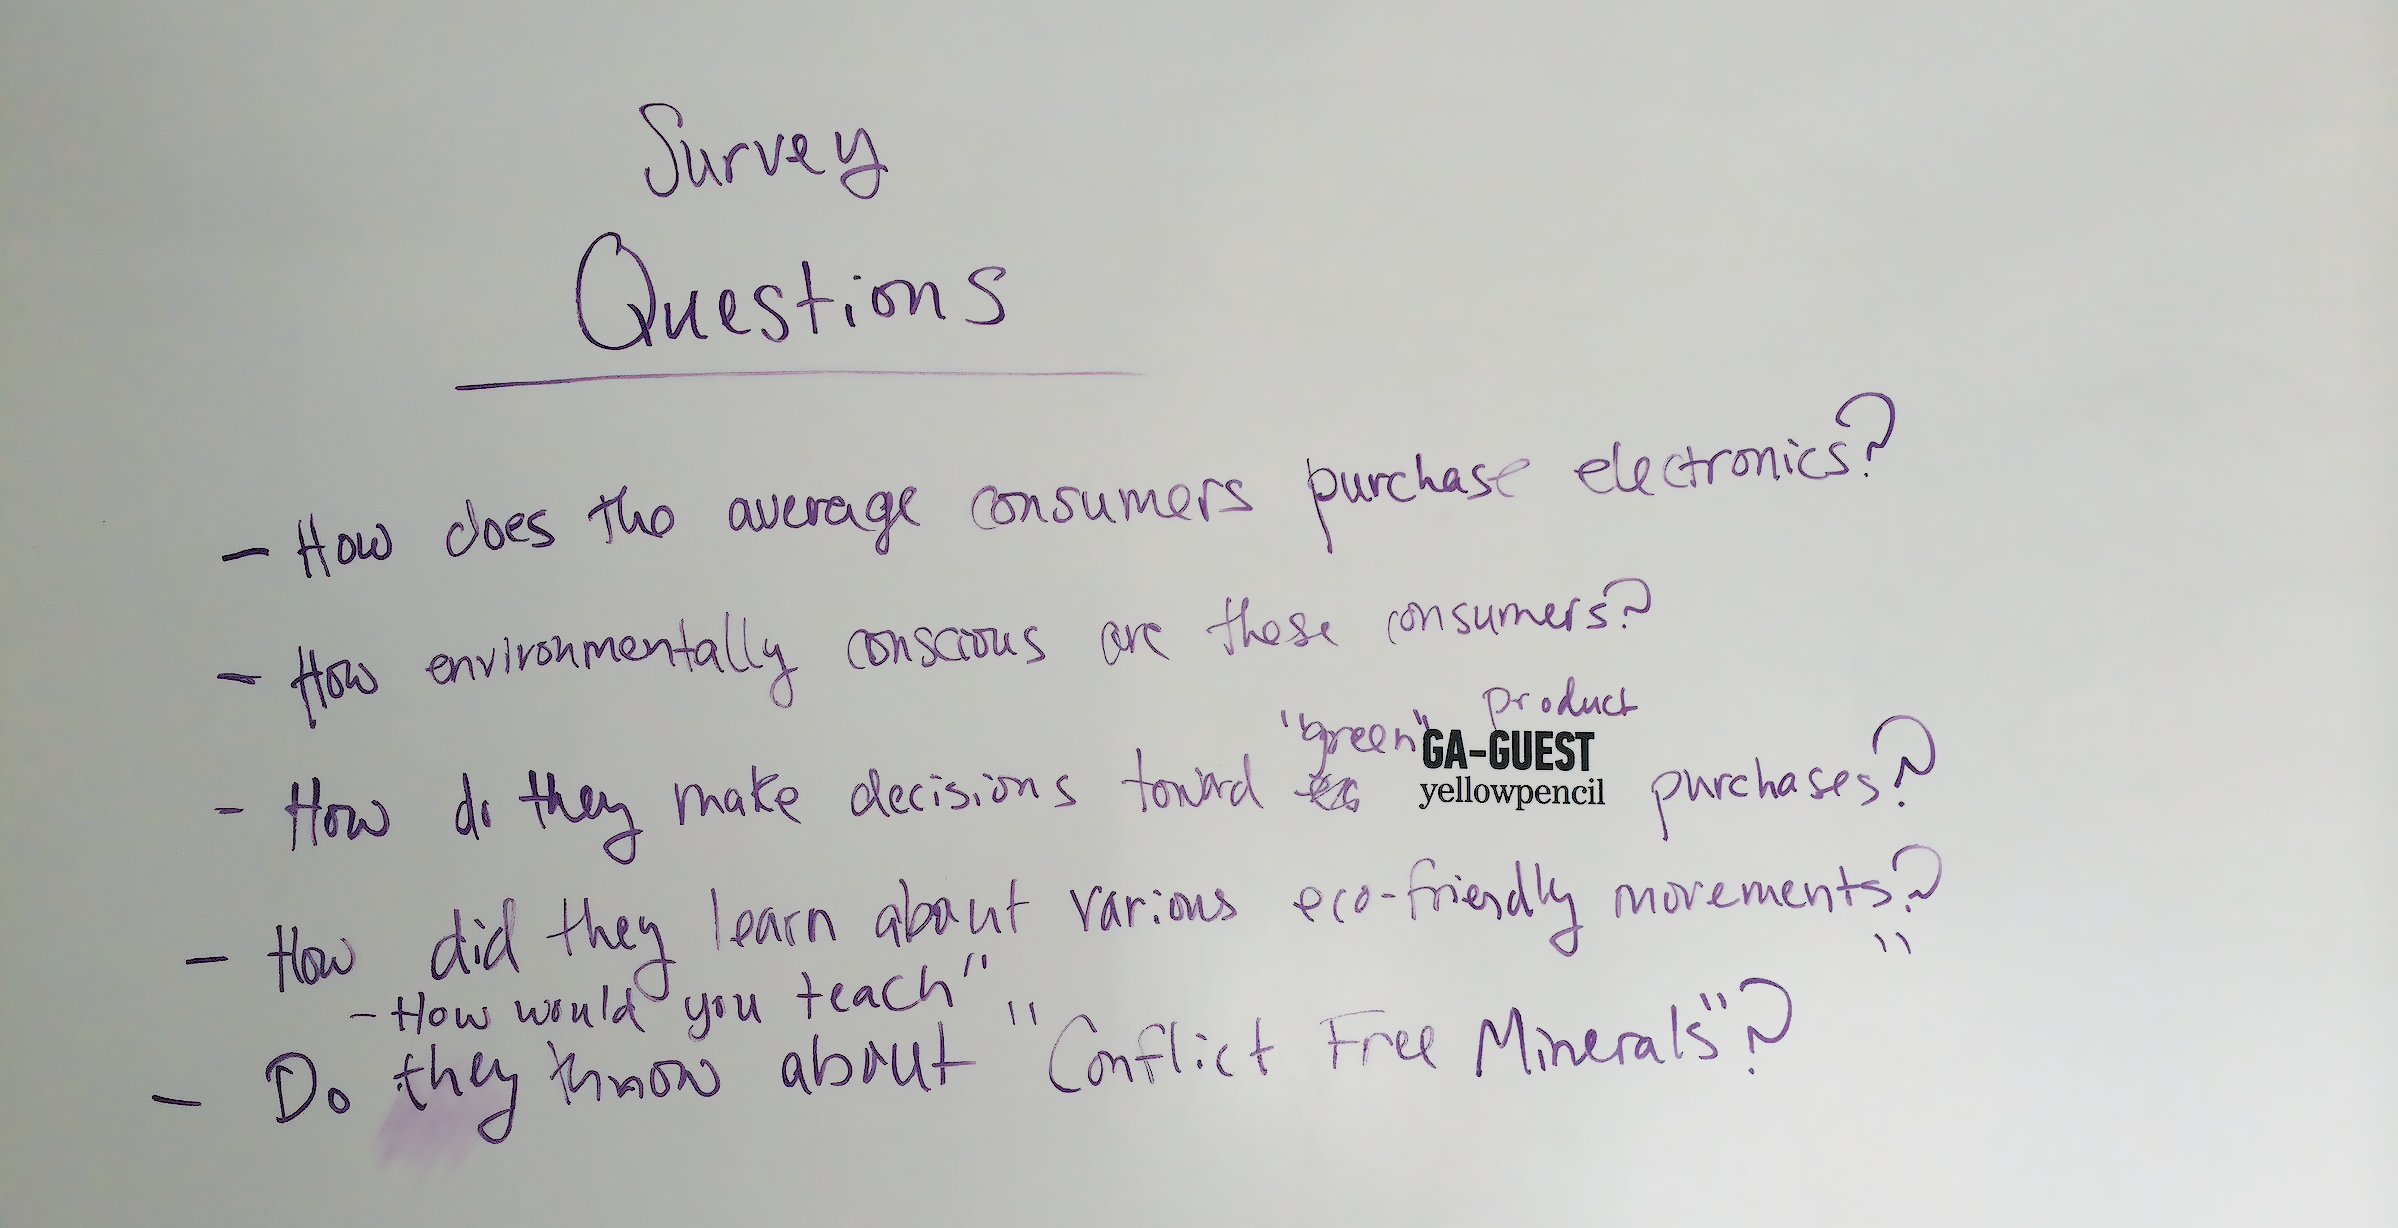 Survey
Questions
- How does the average consumers purchase electronics?
- How environmentally conscious are these consumers?
"green" product
- How do they make decisions toward purchases?
GA-GUEST
yellowpencil
- How did they learn about various eco-friendly movements?
- How would you teach " "
- Do they know about "Conflict Free Minerals"?